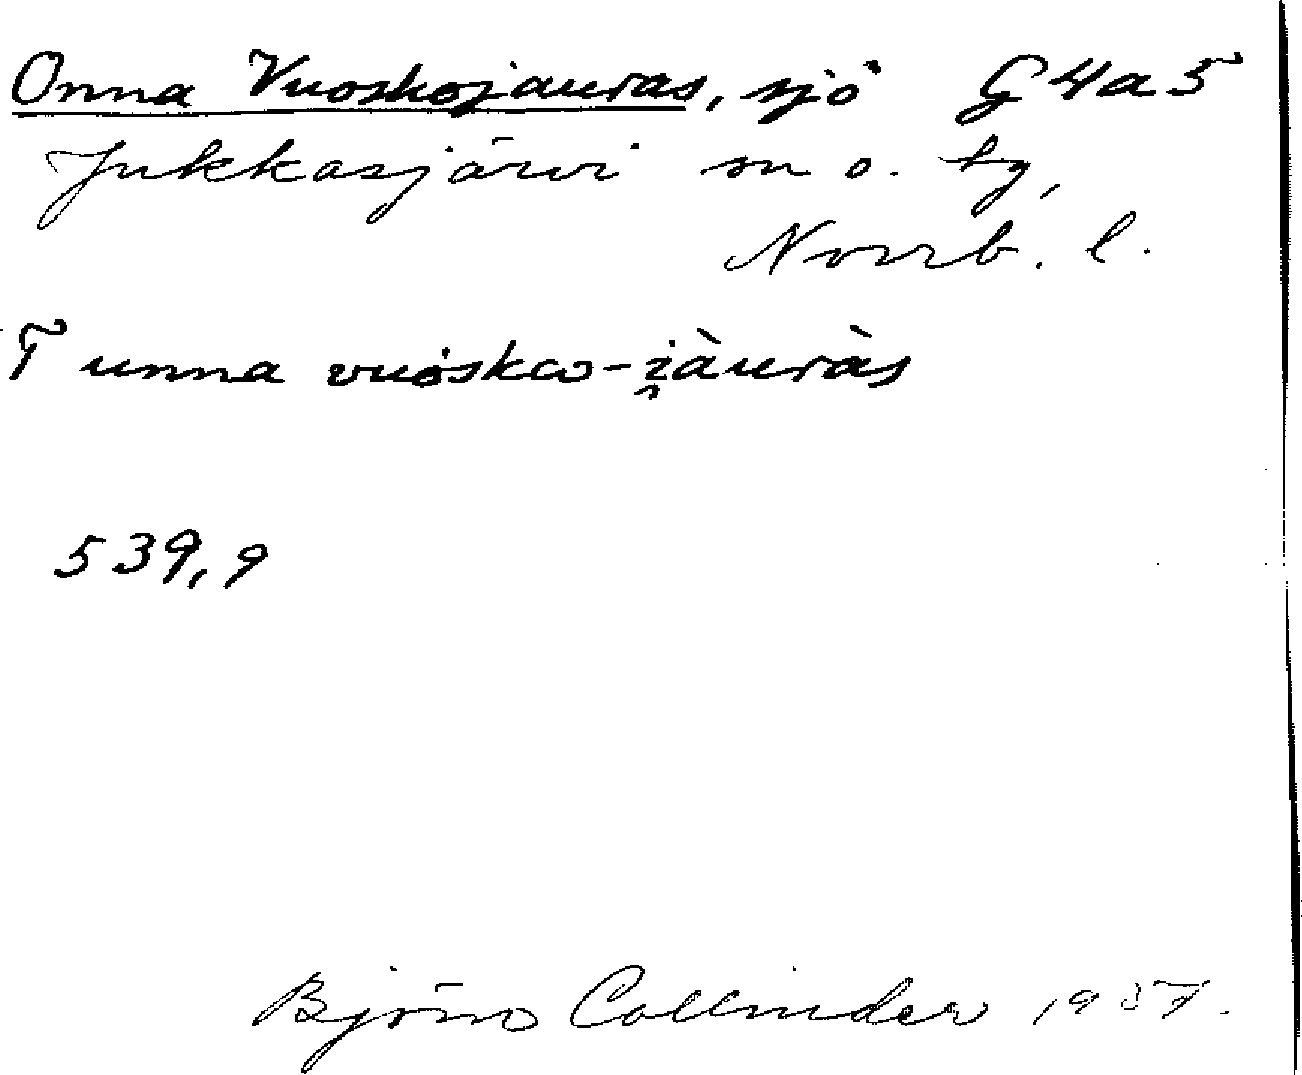 Onna Vuoskojauras, sjö G4a5
Jukkasjärvi sn o. tg,
Norrb. l.
T unna vuosko-i̯àuràs
539,9
Björn Collinder 1957.